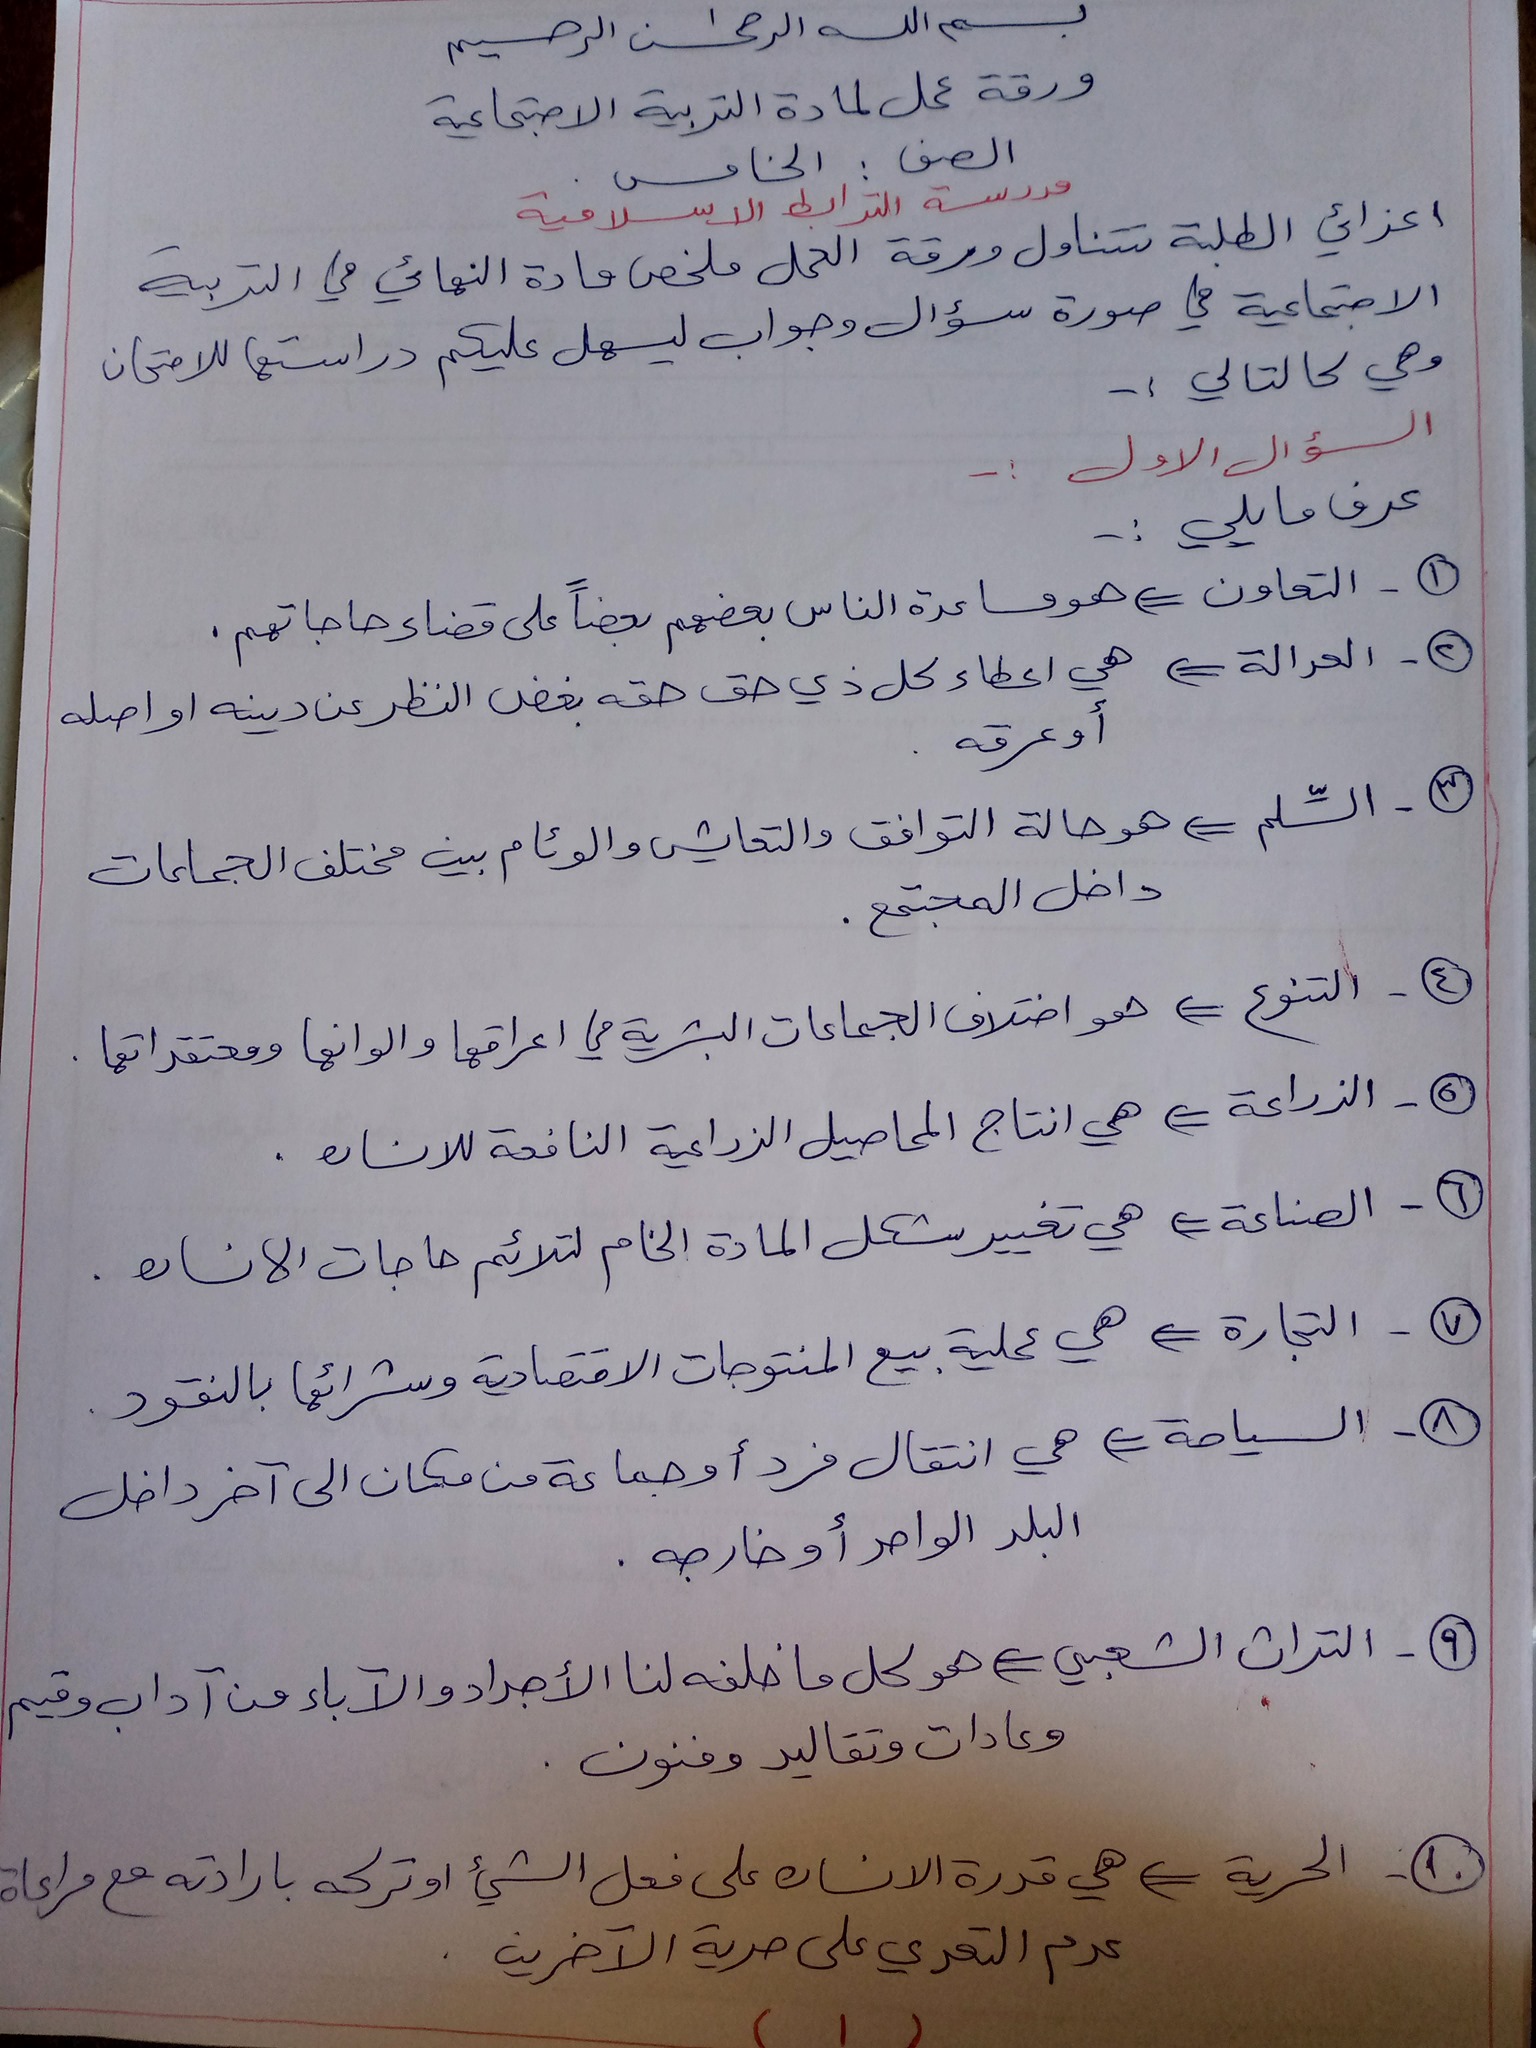 بسم الله الرحمن الرحيم
ورقة عمل لمادة التربية الاجتماعية
الصف : الخامس .
مدرسة الترابط الاسلامية
اعزائي الطلبة تتناول ورقة العمل ملخص مادة النهائي في التربية
الاجتماعية في صورة سؤال وجواب ليسهل عليكم دراستها للامتحان
وهي كالتالي :-
السؤال الاول :-
عرف مايلي :-
١ - التعاون ⇐ هو مساعدة الناس بعضهم بعضاً على قضاء حاجاتهم .
٢ - العدالة ⇐ هي اعطاء كل ذي حق حقه بغض النظر عن دينه او اصله
أو عرقه .
٣ - السِّلم ⇐ هو حالة التوافق والتعايش والوئام بين مختلف الجماعات
داخل المجتمع .
٤ - التنوع ⇐ هو اختلاف الجماعات البشرية في اعراقها والوانها ومعتقداتها .
٥ - الزراعة ⇐ هي انتاج المحاصيل الزراعية النافعة للانسان .
٦ - الصناعة ⇐ هي تغيير شكل المادة الخام لتلائم حاجات الانسان .
٧ - التجارة ⇐ هي عملية بيع المنتوجات الاقتصادية وشرائها بالنقود .
٨ - السياحة ⇐ هي انتقال فرد أو جماعة من مكان الى آخر داخل
البلد الواحد أو خارجه .
٩ - التراث الشعبي ⇐ هو كل ما خلفه لنا الأجداد والآباء من آداب وقيم
وعادات وتقاليد وفنون .
١٠ - الحرية ⇐ هي قدرة الانسان على فعل الشئ او تركه بارادته مع مراعاة
عدم التعدي على حرية الآخرين .
( ١ )